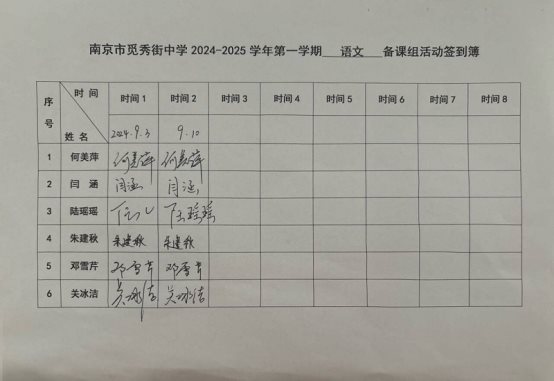 南京市觅秀街中学2024-2025学年第一学期 语文 备课组活动签到簿
序号 时间 姓名 时间1 时间2 时间3 时间4 时间5 时间6 时间7 时间8
2024.9.3 9.10
1 何美萍 何美萍 何美萍
2 闫涵 闫涵 闫涵
3 陆瑶瑶 陆瑶瑶
4 朱建秋 朱建秋 朱建秋
5 邓雪芹 邓雪芹 邓雪芹
6 关冰洁 关冰洁 关冰洁